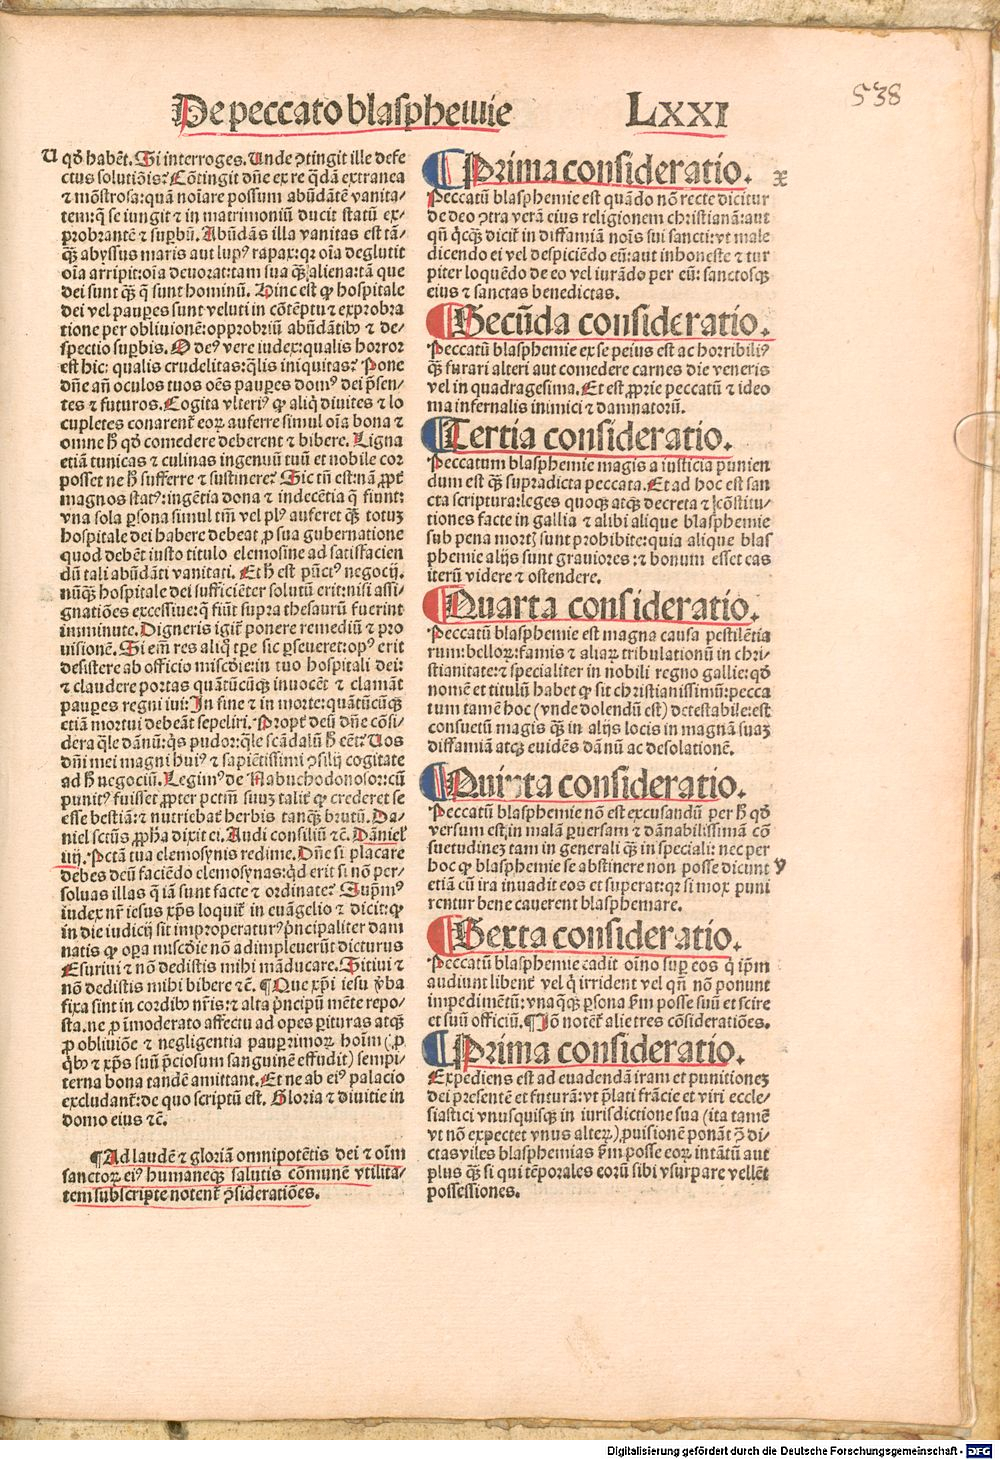 De peccato blasphemie LXXI
538
U qd̄ habēt. Si interroges. Unde ꝯtingit ille defe
ctus solutiōis? Cōtingit dn̄e ex re q̄dā extranea
⁊ mōstrosa: quā noīare possum abūdātē vanita-
tem: q̄ se iungit ⁊ in matrimoniū ducit statū ex-
ꝓbrantē ⁊ suꝑbū. Abūdās illa vanitas est tā-
q̄ꝫ abyssus maris aut lupꝰ rapax: qꝛ oīa deglutit
oīa arripit: oīa deuorat: tam sua q̄ꝫ aliena: tā que
dei sunt q̄ꝫ q̄ sunt hominū. Hinc est ꝙ hospitale
dei vel pauꝑes sunt veluti in cōtēptu ⁊ exprobra
tione per obliuionē: opprobriū abūdātibꝰ ⁊ de-
spectio suꝑbis. O deꝰ vere iudex: qualis horror
est hic: qualis crudelitas: q̄lis iniquitas? Pone
dn̄e an̄ oculos tuos oēs pauꝑes domꝰ dei p̄sen-
tes ⁊ futuros. Cogita vlteriꝰ ꝙ aliq̄ diuites ⁊ lo
cupletes conarent̄ eoꝝ auferre simul oīa bona ⁊
omne h̄ qd̄ comedere deberent ⁊ bibere. Ligna
etiā tunicas ⁊ culinas ingenuū tuū et nobile cor
posset ne h̄ sufferre ⁊ sustinere? Sic tn̄ est: nā ꝓpt̄
magnos statꝰ: ingētia dona ⁊ indecētia q̄ fiunt:
vna sola ꝑsona simul tm̄ vel plꝰ auferet q̄ꝫ totuꝫ
hospitale dei habere debeat ꝓ sua gubernatione
quod debēt iusto titulo elemosine ad satisfacien
dū tali abūdāti vanitati. Et h̄ est pūctꝰ negocij.
nūq̄ꝫ hospitale dei sufficiēter solutū erit: nisi assi-
gnatiōes excessiue: q̄ fiūt supra thesaurū fuerint
imminute. Digneris igit̄ ponere remediū ⁊ pro
uisionē. Si em̄ res aliq̄ tꝑe sic ꝑseueret: opꝰ erit
desistere ab officio miscd̄ie: in tuo hospitali dei:
⁊ claudere portas quātūcūqꝫ inuocēt ⁊ clamāt
pauꝑes regni tui: In fine ⁊ in morte: quātūcūqꝫ
etiā mortui debeāt sepeliri. Propt̄ deū dn̄e cōsi-
dera q̄le dānū: q̄s pudor: q̄le scādalū h̄ eēt? Uos
dn̄i mei magni huiꝰ ⁊ sapiētissimi ꝯsilij cogitate
ad h̄ negociū. Legimꝰ de Nabuchodonosor: cū
punitꝰ fuisset ꝓpter pctm̄ suuꝫ talit̄ ꝙ crederet se
esse bestiā: ⁊ nutriebat̄ herbis tanq̄ꝫ brutū. Da-
niel sctūs ꝓph̄a dixit ei. Audi consiliū ⁊c̄. Daniel
iiij. Pctā tua elemosynis redime. Dn̄e si placare
debes deū faciēdo elemosynas: qd̄ erit si nō per-
soluas illas q̄ iā sunt facte ⁊ ordinate? Supmꝰ
iudex nr̄ iesus xp̄s loquit̄ in euāgelio ⁊ dicit: ꝙ
in die iudicij sit improperaturꝰ p̄ncipaliter dam
natis ꝙ oꝑa miscd̄ie nō adimpleuerūt dicturus
Esuriui ⁊ nō dedistis mihi māducare. Sitiui ⁊
nō dedistis mihi bibere ⁊c̄. ¶ Que xp̄i iesu v̄ba
fixa sint in cordibꝰ nr̄is: ⁊ alta p̄ncipū mēte repo-
sta. ne ꝓ īmoderato affectu ad opes ꝑituras atqꝫ
ꝓ obliuiōe ⁊ negligentia pauꝑrimoꝝ hoīm (ꝓ
q̄bꝰ ⁊ xp̄s suū p̄ciosum sanguinē effudit) sempi-
terna bona tandē amittant. Et ne ab eiꝰ palacio
excludant̄: de quo scriptū est. Gloria ⁊ diuitie in
domo eius ⁊c̄.
¶ Ad laudē ⁊ gloriā omnipotētis dei ⁊ oīm
sanctoꝝ eiꝰ humaneqꝫ salutis cōmunē vtilita-
tem subscripte notent̄ ꝯsideratiōes.
¶ Prima consideratio. x
Peccatū blasphemie est quādo nō recte dicitur
de deo ꝯtra verā eius religionem christianā: aut
qn̄ q̄cqꝫ dicit̄ in diffamiā noīs sui sancti: vt male
dicendo ei vel despiciēdo eū: aut inhoneste ⁊ tur
piter loquēdo de eo vel iurādo per eū: sanctosqꝫ
eius ⁊ sanctas benedictas.
¶ Secūda consideratio.
Peccatū blasphemie ex se peius est ac horribiliꝰ
q̄ꝫ furari alteri aut comedere carnes die veneris
vel in quadragesima. Et est ꝓprie peccatū ⁊ ideo
ma infernalis inimici ⁊ damnatorū.
¶ Tertia consideratio.
Peccatum blasphemie magis a iusticia punien
dum est q̄ꝫ supradicta peccata. Et ad hoc est san
cta scriptura: leges quoqꝫ atqꝫ decreta ⁊ ꝯstitu-
tiones facte in gallia ⁊ alibi alique blasphemie
sub pena mortꝭ sunt prohibite: quia alique blas
phemie alijs sunt grauiores: ⁊ bonum esset eas
iterū videre ⁊ ostendere.
¶ Quarta consideratio.
Peccatū blasphemie est magna causa pestilētia
rum: belloꝝ: famis ⁊ aliaꝝ tribulationū in chri-
stianitate: ⁊ specialiter in nobili regno gallie: qd̄
nomē et titulū habet ꝙ sit christianissimū: pecca
tum tamē hoc (vnde dolendū est) detestabile: est
consuetū magis q̄ꝫ in alijs locis in magnā suaꝫ
diffamiā atqꝫ euidēs dānū ac desolationē.
¶ Quinta consideratio.
Peccatū blasphemie nō est excusandū per h̄ qd̄
versum est in malā ꝑuersam ⁊ dānabilissimā cō
suetudineꝫ tam in generali q̄ꝫ in speciali: nec per
hoc ꝙ blasphemie se abstinere non posse dicunt y
etiā cū ira inuadit eos et superat: qꝛ si mox puni
rentur bene cauerent blasphemare.
¶ Sexta consideratio.
Peccatū blasphemie cadit oīno suꝑ eos q̄ ip̄m
audiunt libent̄ vel q̄ irrident vel qn̄ nō ponunt
impedimētū: vnaq̄qꝫ ꝑsona ẜm posse suū et scire
et suū officiū. ¶ Iō notēt̄ alie tres cōsideratiōes.
¶ Prima consideratio.
Expediens est ad euadendā iram et punitioneꝫ
dei presentē et futurā: vt p̄lati frācie et viri eccle-
siastici vnusquisqꝫ in iurisdictione sua (ita tamē
vt nō expectet vnus alteꝝ) ꝓuisionē ponāt ꝯ di-
ctas viles blasphemias ẜm posse eoꝝ intātū aut
plus q̄ꝫ si qui tēporales eorū sibi vsurpare vellēt
possessiones.
Digitalisierung gefördert durch die Deutsche Forschungsgemeinschaft - DFG